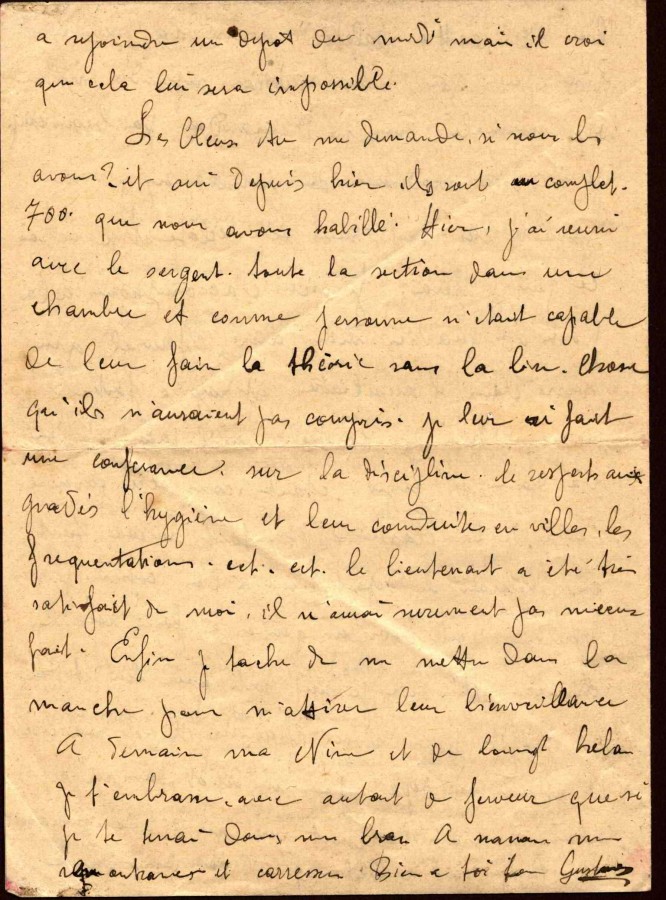 a rejoindre un depot du midi mais il croi
que cela lui sera impossible.
Les bleus tu me demande, si nous les
avons? et oui depuis hier ils sont au complet.
700. que nous avons habillé. Hier, j'ai reuni
avec le sergent. toute la section dans une
chambre et comme personne n'etait capable
de leur fair la théorie sans la lire. chose
qu'ils n'auraient pas compris. je leur ai fait
une conferance. sur la discipline. le respect aux
gradés l'hygiène et leur conduites en villes, les
frequentations. ect. ect. le lieutenant a été très
satisfait de moi, il n'aurai surement pas mieux
fait. Enfin je tache de me mettre dans la
manche pour m'attirer leur bienveillance
A demain ma Nine et de loin helas
je t'embrasse, avec autant de ferveur que si
je te tenai dans mes bras A maman mes
et caresses Bien a toi ton Gustave